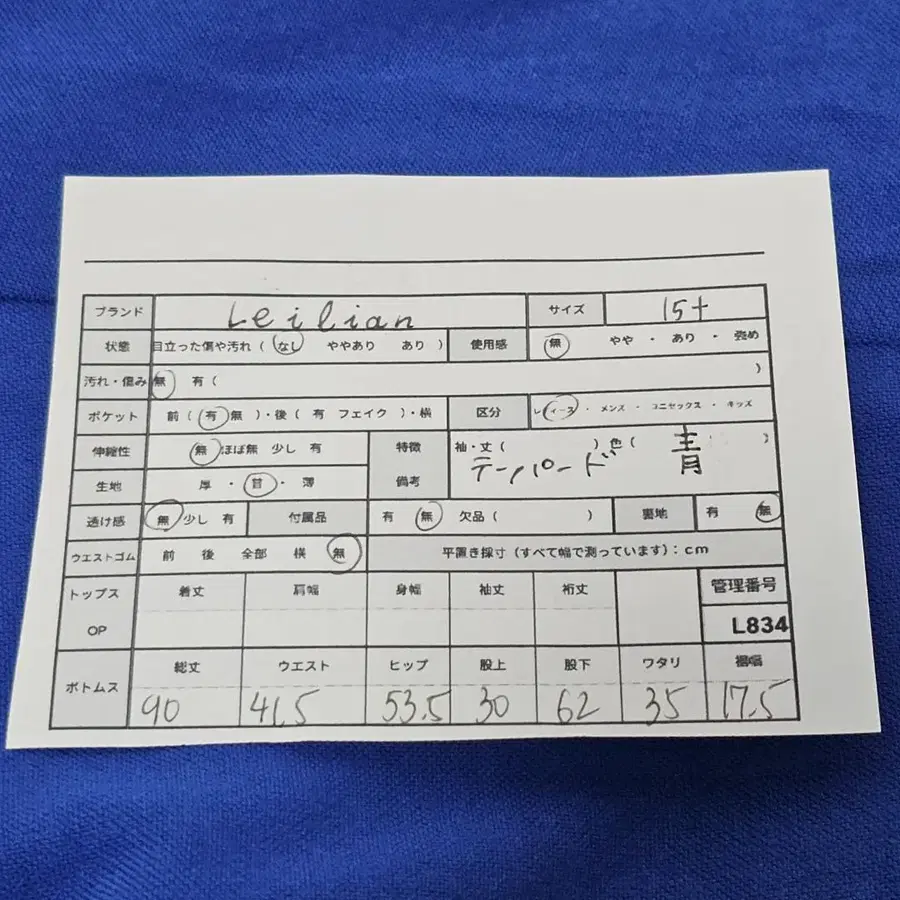 ブランド Leilian サイズ 15+
状態 目立った傷や汚れ ( なし ややあり あり ) 使用感 無 やや ・ あり ・ 強め
汚れ・傷み 無 有 ( )
ポケット 前 ( 有 無 ) ・後 ( 有 フェイク ) ・横 区分 レディース ・ メンズ ・ ユニセックス ・ キッズ
伸縮性 無 ほぼ無 少し 有 特徴 袖・丈 ( ) 色 ( 青 )
生地 厚 ・ 普 ・ 薄 備考 テーパード
透け感 無 少し 有 付属品 有 無 欠品 ( ) 裏地 有 無
ウエストゴム 前 後 全部 横 無 平置き採寸 (すべて幅で測っています) : cm
トップス 着丈 肩幅 身幅 袖丈 裄丈 管理番号
OP L834
ボトムス 総丈 ウエスト ヒップ 股上 股下 ワタリ 裾幅
90 41.5 53.5 30 62 35 17.5